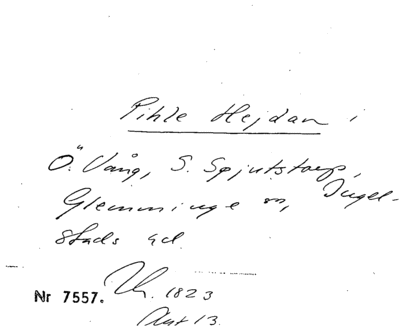 Pihle Hejdan i
Ö. Vång, S. Spjutstorp,
Glemminge sn, Ingel-
stads hd
Nr 7557. 1823
Akt 13.